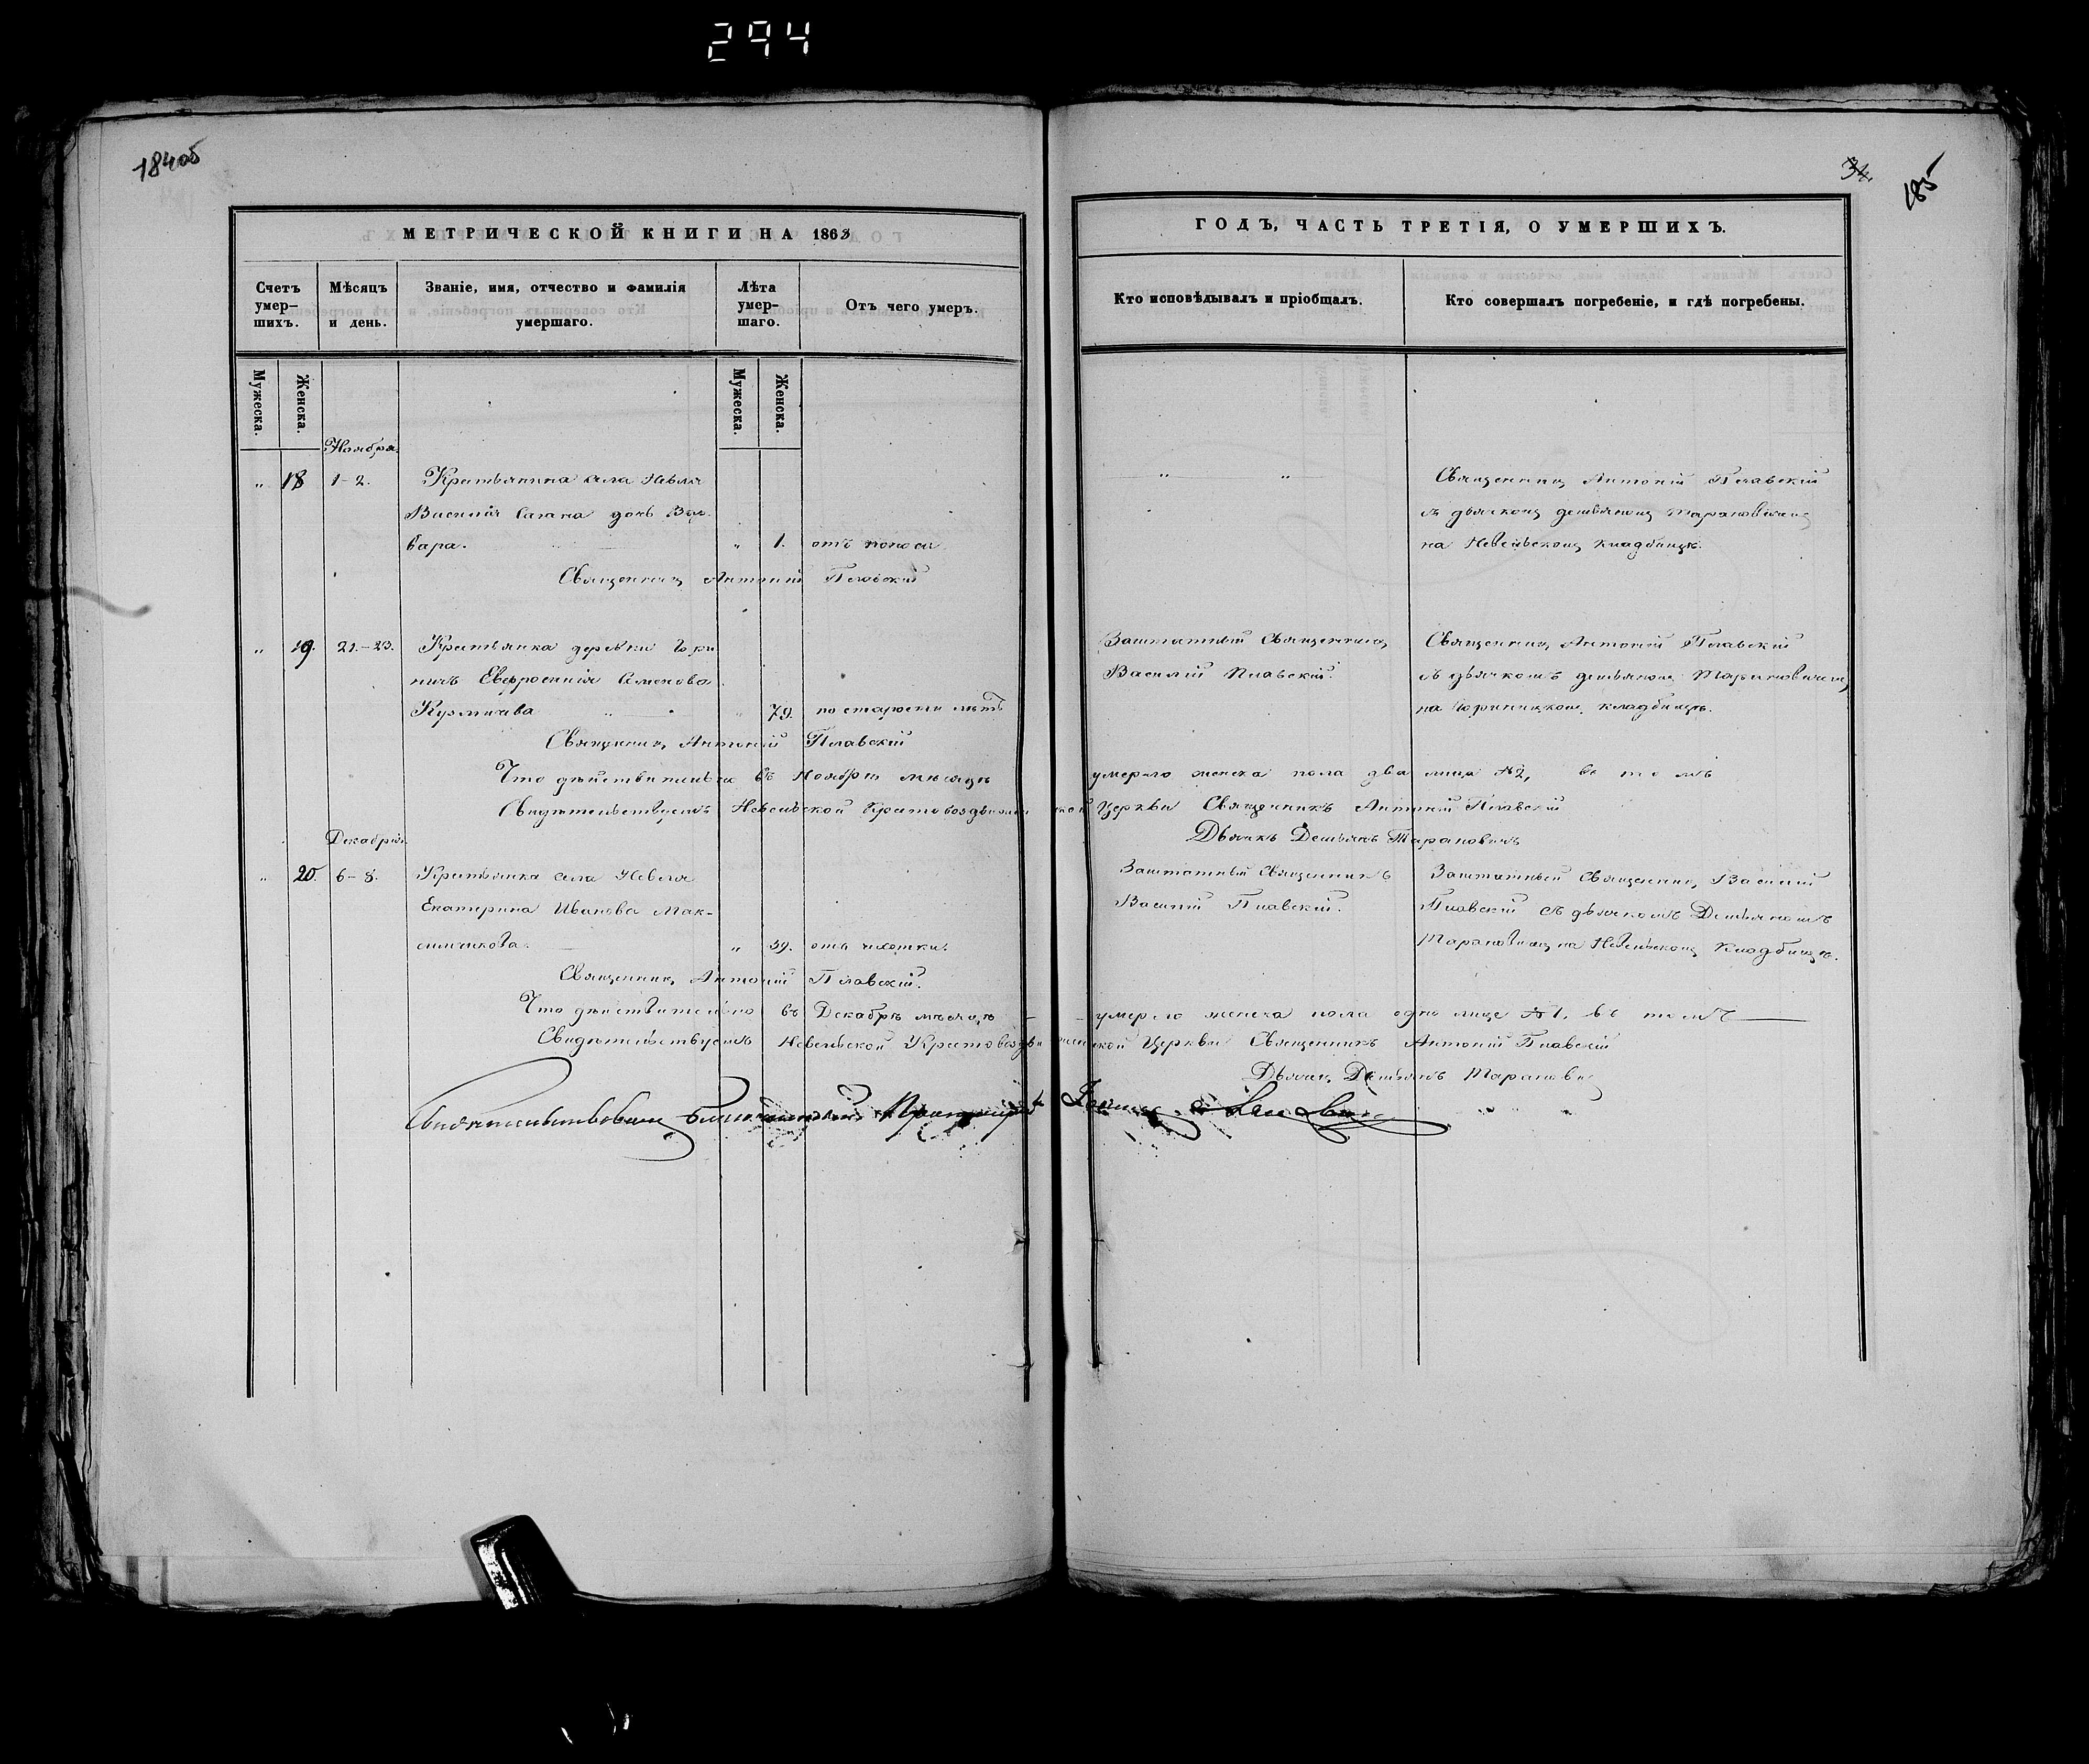 294
184об
34.
185
МЕТРИЧЕСКОЙ КНИГИ НА 1863
ГОДЪ, ЧАСТЬ ТРЕТІЯ, О УМЕРШИХЪ.
Счетъ умер-шихъ.
Мѣсяцъ и день.
Званіе, имя, отчество и фамилія умершаго.
Лѣта умер-шаго.
Отъ чего умеръ.
Кто исповѣдывалъ и пріобщалъ.
Кто совершалъ погребеніе, и гдѣ погребены.
Мужеска.
Женска.
Мужеска.
Женска.
Ноября.
" 18 1-2. Крестьянина села Невля
Василія Сагана дочь Вар-
вара. " 1. отъ поноса
" "
Священникъ Антоній Плавскій
съ дьячкомъ Демьяномъ Тарановичемъ
на Невельскомъ кладбищѣ.
Священникъ Антоній Плавскій
" 19. 21.-23. Крестьянка деревни
Евфросинія Семенова
" 79. по старости лѣтъ
Заштатный Священникъ
Василій Плавскій.
Священникъ Антоній Плавскій
съ дьячкомъ Демьяномъ Тарановичемъ
на кладбищѣ.
Священникъ Антоній Плавскій
Что дѣйствительно въ Ноябрѣ мѣсяцѣ умерло женска пола два лица №2, въ томъ
Свидѣтельствуемъ Невельской Крестовоздвиженской Церкви Священникъ Антоній Плавскій
Дьячкъ Демьянъ Тарановичъ
Декабрія.
" 20. 6-8. Крестьянка села Невля
Екатерина Иванова Мак-
симчикова. " 39. отъ чихотки.
Заштатный Священникъ
Василій Плавскій.
Заштатный Священникъ Василій
Плавскій съ дьячкомъ Демьяномъ
Тарановичемъ на Невельскомъ Кладбищѣ.
Священникъ Антоній Плавскій.
Что дѣйствительно въ Декабрѣ мѣсяцѣ умерло женска пола одно лице №1, въ томъ
Свидѣтельствуемъ Невельской Крестовоздвиженской Церкви Священникъ Антоній Плавскій
Дьячкъ Демьянъ Тарановичъ
Свидѣтельствовалъ